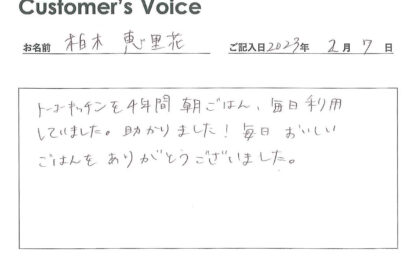 Customer's Voice
お名前 柏木 恵里花 ご記入日2023年 2月 7日
トーコーキッチンを4年間 朝ごはん、毎日利用
していました。助かりました！毎日 おいしい
ごはんを ありがとうございました。